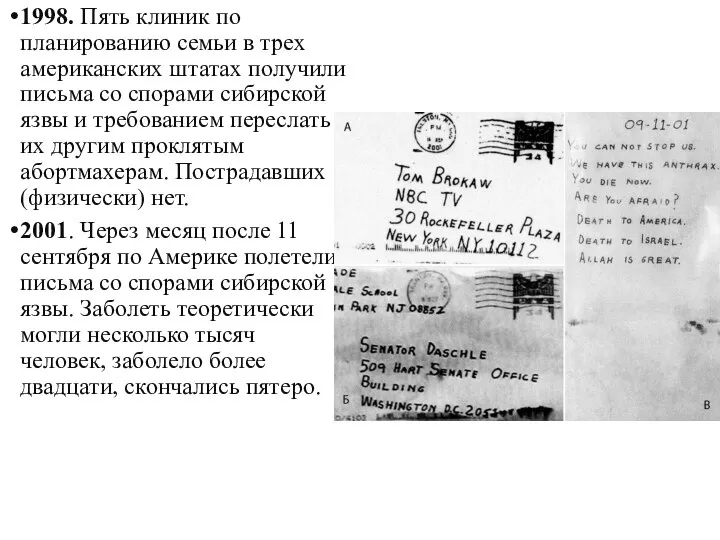 •1998. Пять клиник по
планированию семьи в трех
американских штатах получили
письма со спорами сибирской
язвы и требованием переслать
их другим проклятым
абортмахерам. Пострадавших
(физически) нет.
•2001. Через месяц после 11
сентября по Америке полетели
письма со спорами сибирской
язвы. Заболеть теоретически
могли несколько тысяч
человек, заболело более
двадцати, скончались пятеро.
А
PM
2001
34
TOM BROKAW
NBC TV
30 ROCKEFELLER PLAZA
NEW YORK NY 10112
ADE
ALE SCHOOL
PARK NJ 08852
SENATOR DASCHLE
509 HART SENATE OFFICE
BUILDING
WASHINGTON D.C. 205
Б
09-11-01
YOU CAN NOT STOP US.
WE HAVE THIS ANTHRAX.
YOU DIE NOW.
ARE YOU AFRAID?
DEATH TO AMERICA.
DEATH TO ISRAEL.
ALLAH IS GREAT.
В